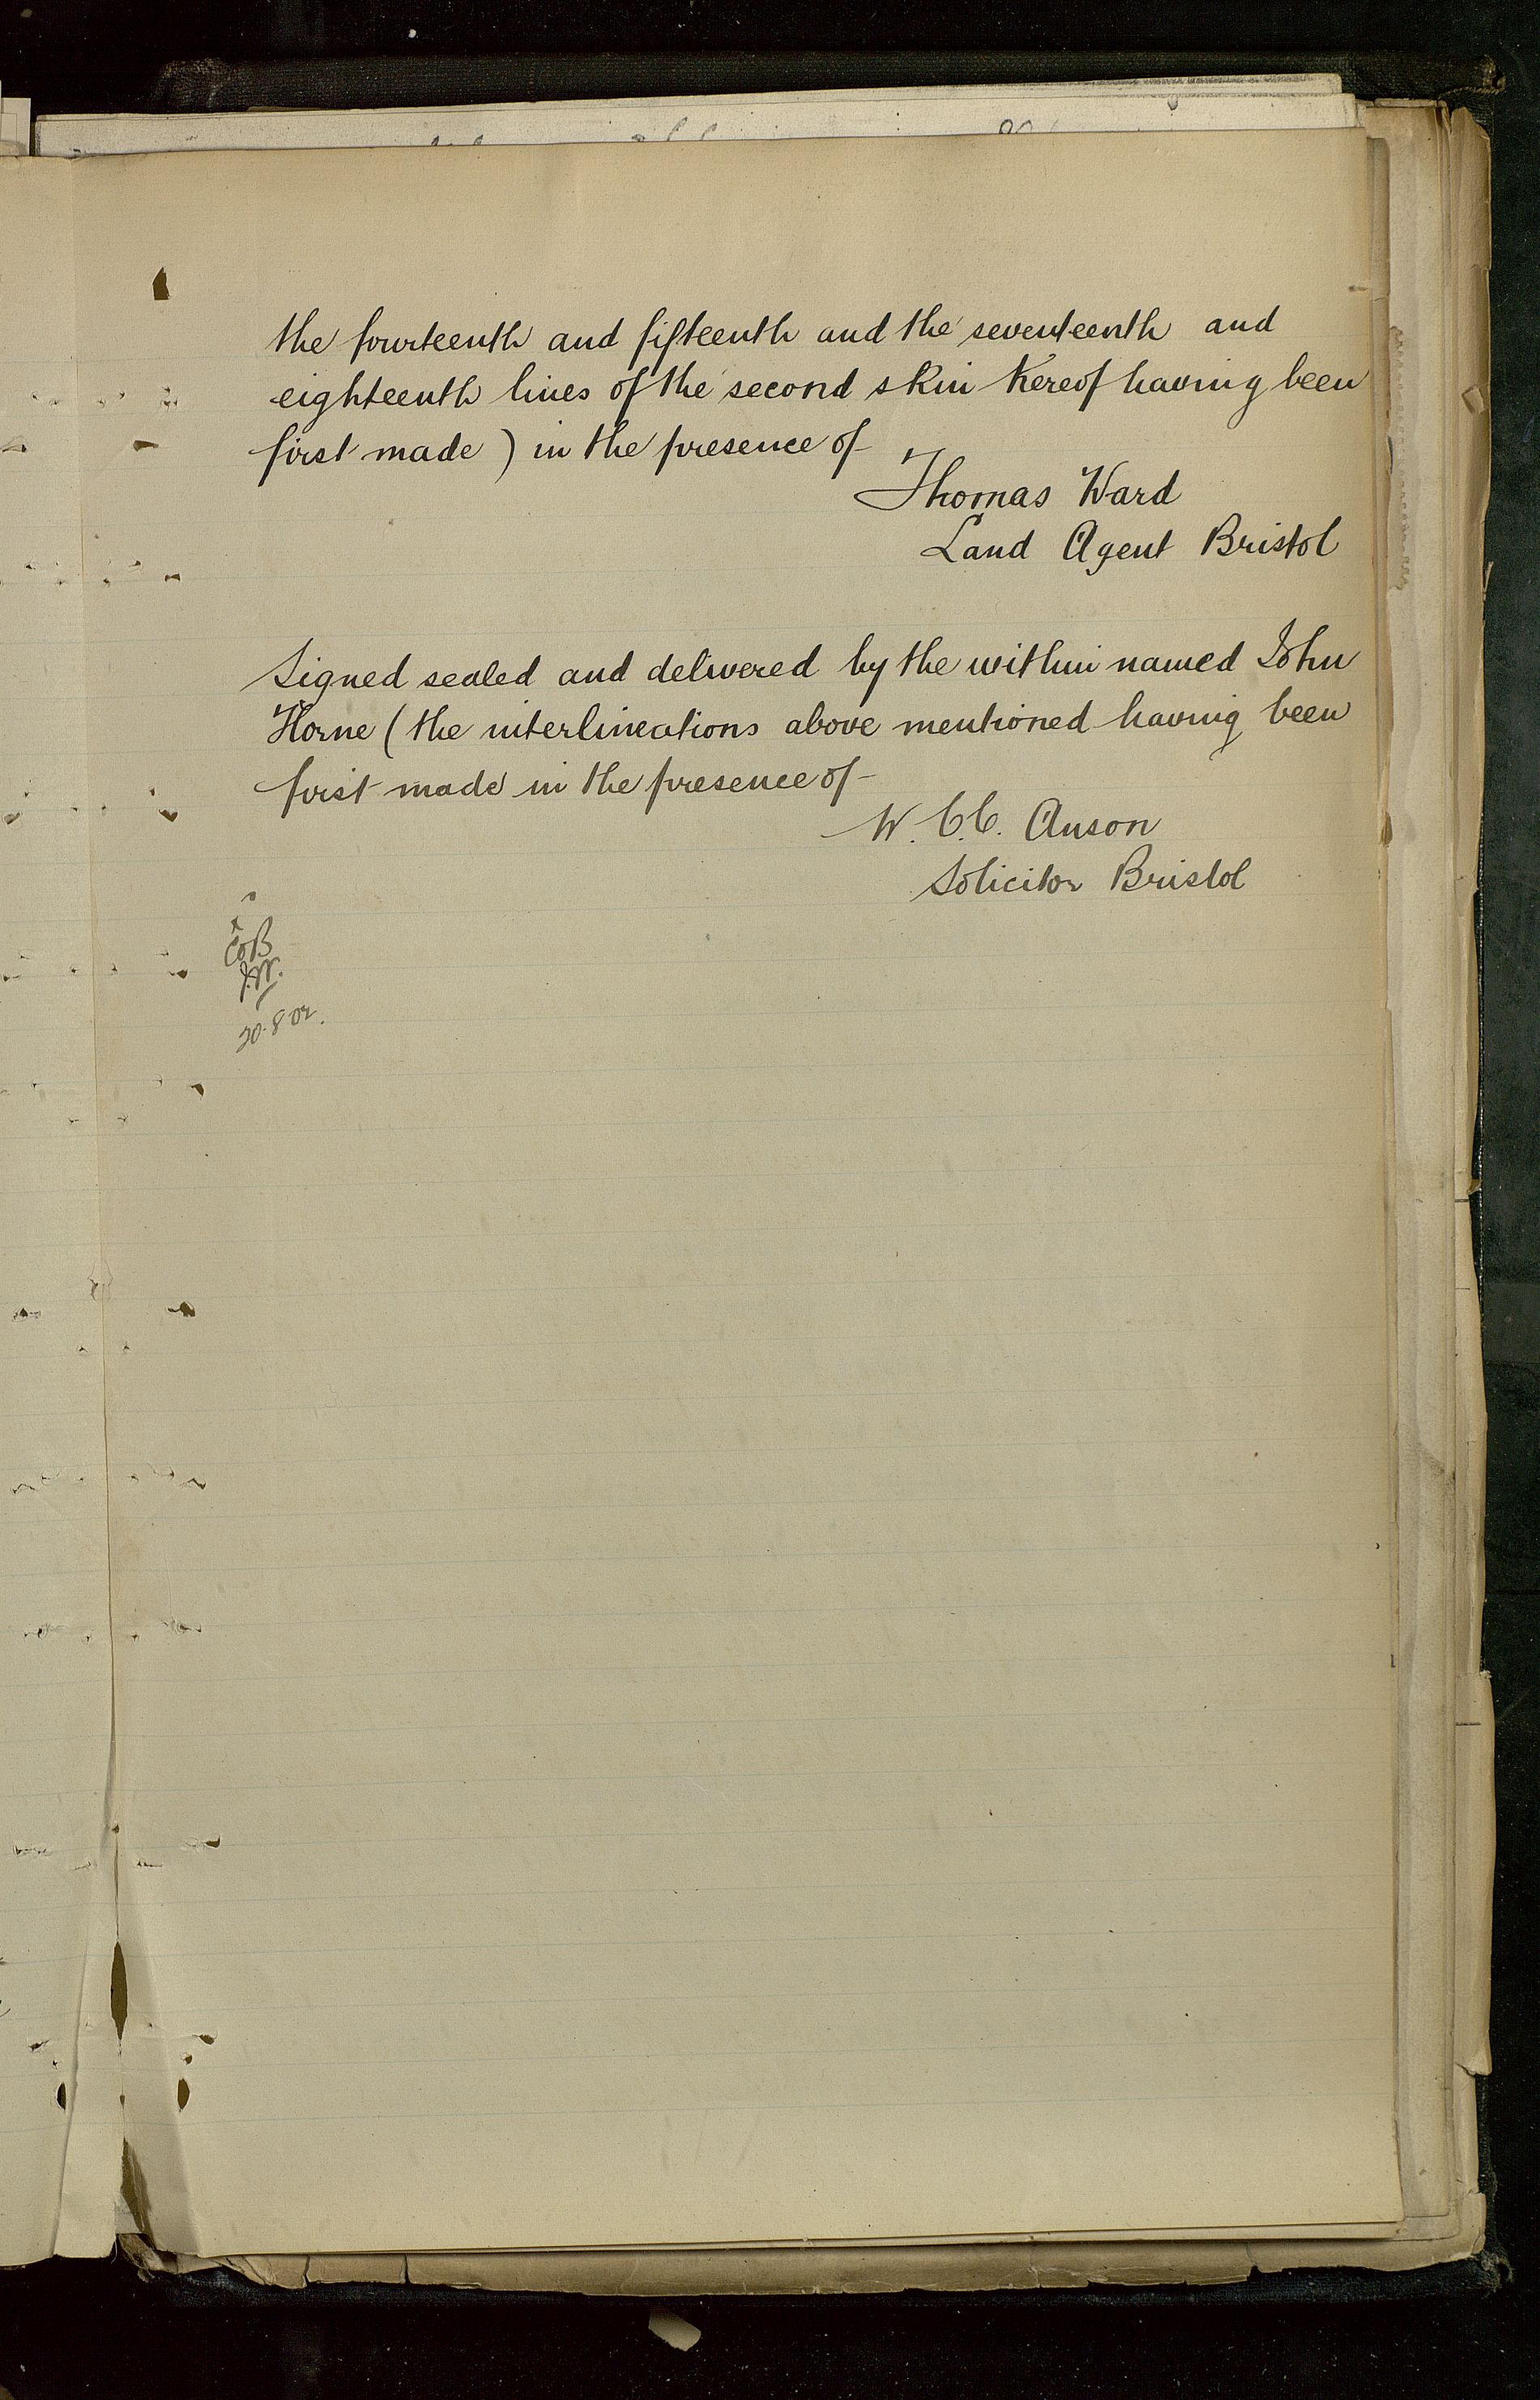 the fourteenth and fifteenth and the seventeenth and
eighteenth lines of the second skin hereof having been
first made) in the presence of
Thomas Ward
Land Agent Bristol
Signed sealed and delivered by the within named John
Horne (the interlineations above mentioned having been
first made in the presence of
W. C. C. Anson
Solicitor Bristol
20.8.02.